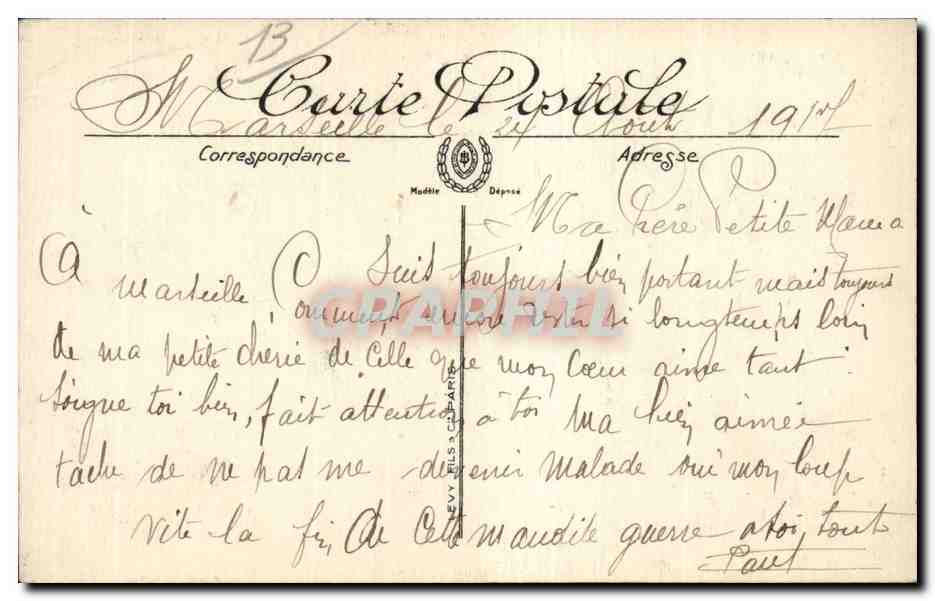 13
Carte Postale
Marseille le 24 Août 191
Correspondance
Adresse
Modèle Déposé
Ma chère Petite Mama
Suis toujours bien portant mais toujours
à Marseille, Comment encore rester si longtemps loin
de ma petite chérie de celle que mon cœur aime tant.
Soigne toi bien, fait attention à toi ma bien aimée
tache de ne pas me devenir malade oui mon loup
Vite la fin de cette maudite guerre a toi, tout
Paul
LEVY FILS & Cie PARIS
CPAPHIL